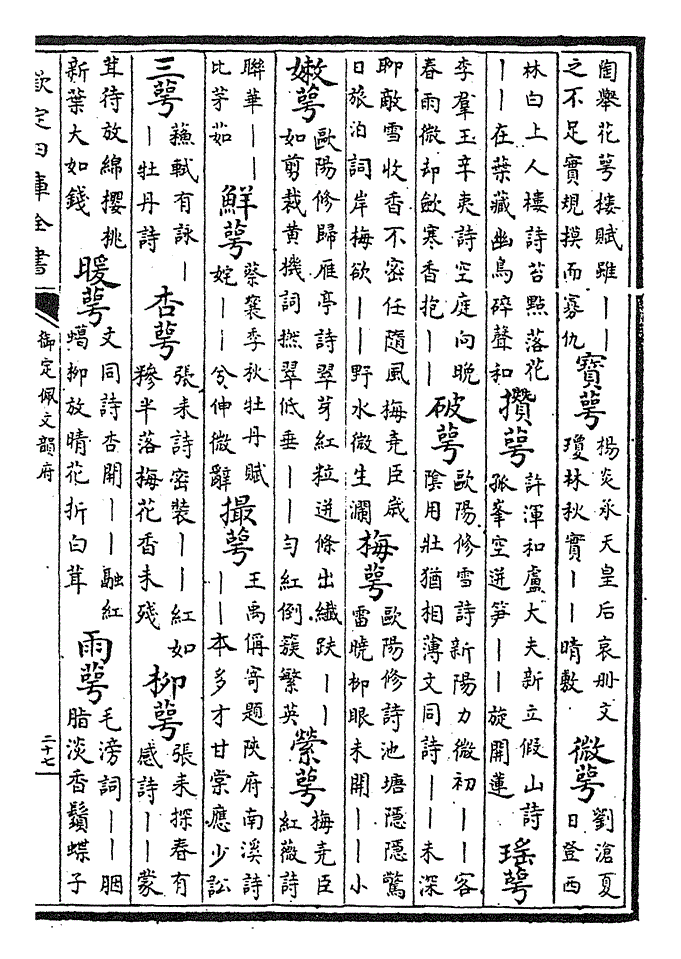 陶舉花萼樓賦雖｜｜
之不足實規摸而寡仇
寶萼
楊炎承天皇后哀册文
瓊林秋實｜｜晴敷
微萼
劉滄夏
日登西
林白上人樓詩苔點落花
｜｜在葉藏幽鳥碎聲和
攢萼
許渾和盧大夫新立假山詩
孤峯空迸笋｜｜旋開蓮
瑶萼
李羣玉辛夷詩空庭向晚
春雨微却斂寒香抱｜｜
破萼
歐陽修雪詩新陽力微初｜｜客
陰用壯猶相薄文同詩｜｜未深
聊敵雪收香不密任隨風梅堯臣歲
日旅泊詞岸梅欲｜｜野水微生瀾
梅萼
歐陽修詩池塘隠隠驚
雷曉柳眼未開｜｜小
嫩萼
歐陽修歸雁亭詩翠芽紅粒迸條出纖趺｜｜
如剪裁黄機詞撚翠低垂｜｜勻紅倒簇繁英
縈萼
梅堯臣
紅薇詩
聯華｜｜
比茅茹
鮮萼
蔡襄季秋牡丹賦
姹｜｜兮伸微辭
撮萼
王禹偁寄題陜府南溪詩
｜｜本多才甘棠應少訟
三萼
蘓軾有詠｜
｜牡丹詩
杏萼
張耒詩密裝｜｜紅如
糝半落梅花香未殘
柳萼
張耒探春有
感詩｜｜蒙
茸待放綿櫻桃
新葉大如錢
暖萼
文同詩杏開｜｜融紅
蠟柳放晴花折白茸
雨萼
毛滂詞｜｜胭
脂淡香鬚蝶子
欽定四庫全書
御定佩文韻府
二十七